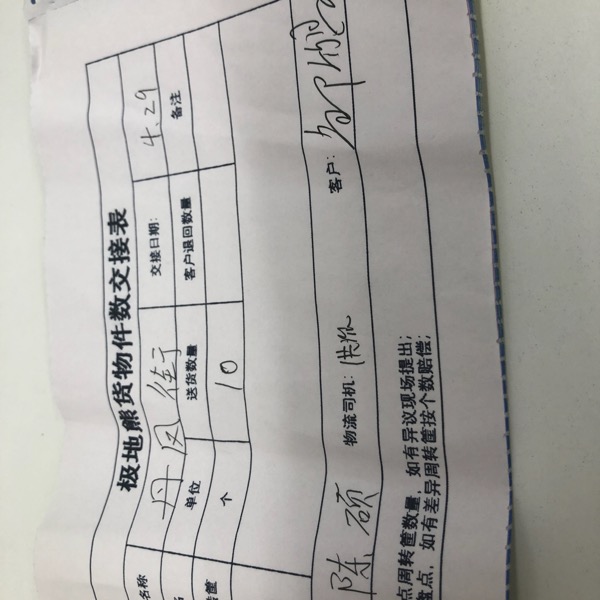 极地熊货物件数交接表
名称 丹凤街 交接日期: 4.29
单位 送货数量 客户退回数量 备注
筐 个 10
陈硕 物流司机: 客户:
点周转筐数量，如有异议现场提出；
盘点，如有差异周转筐按个数赔偿；